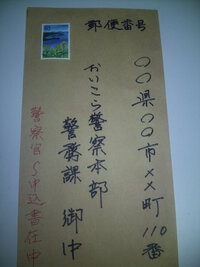 郵便番号
〇〇県〇〇市××町110番
おいこら警察本部
警務課 御中
警察官〜申込書在中
80